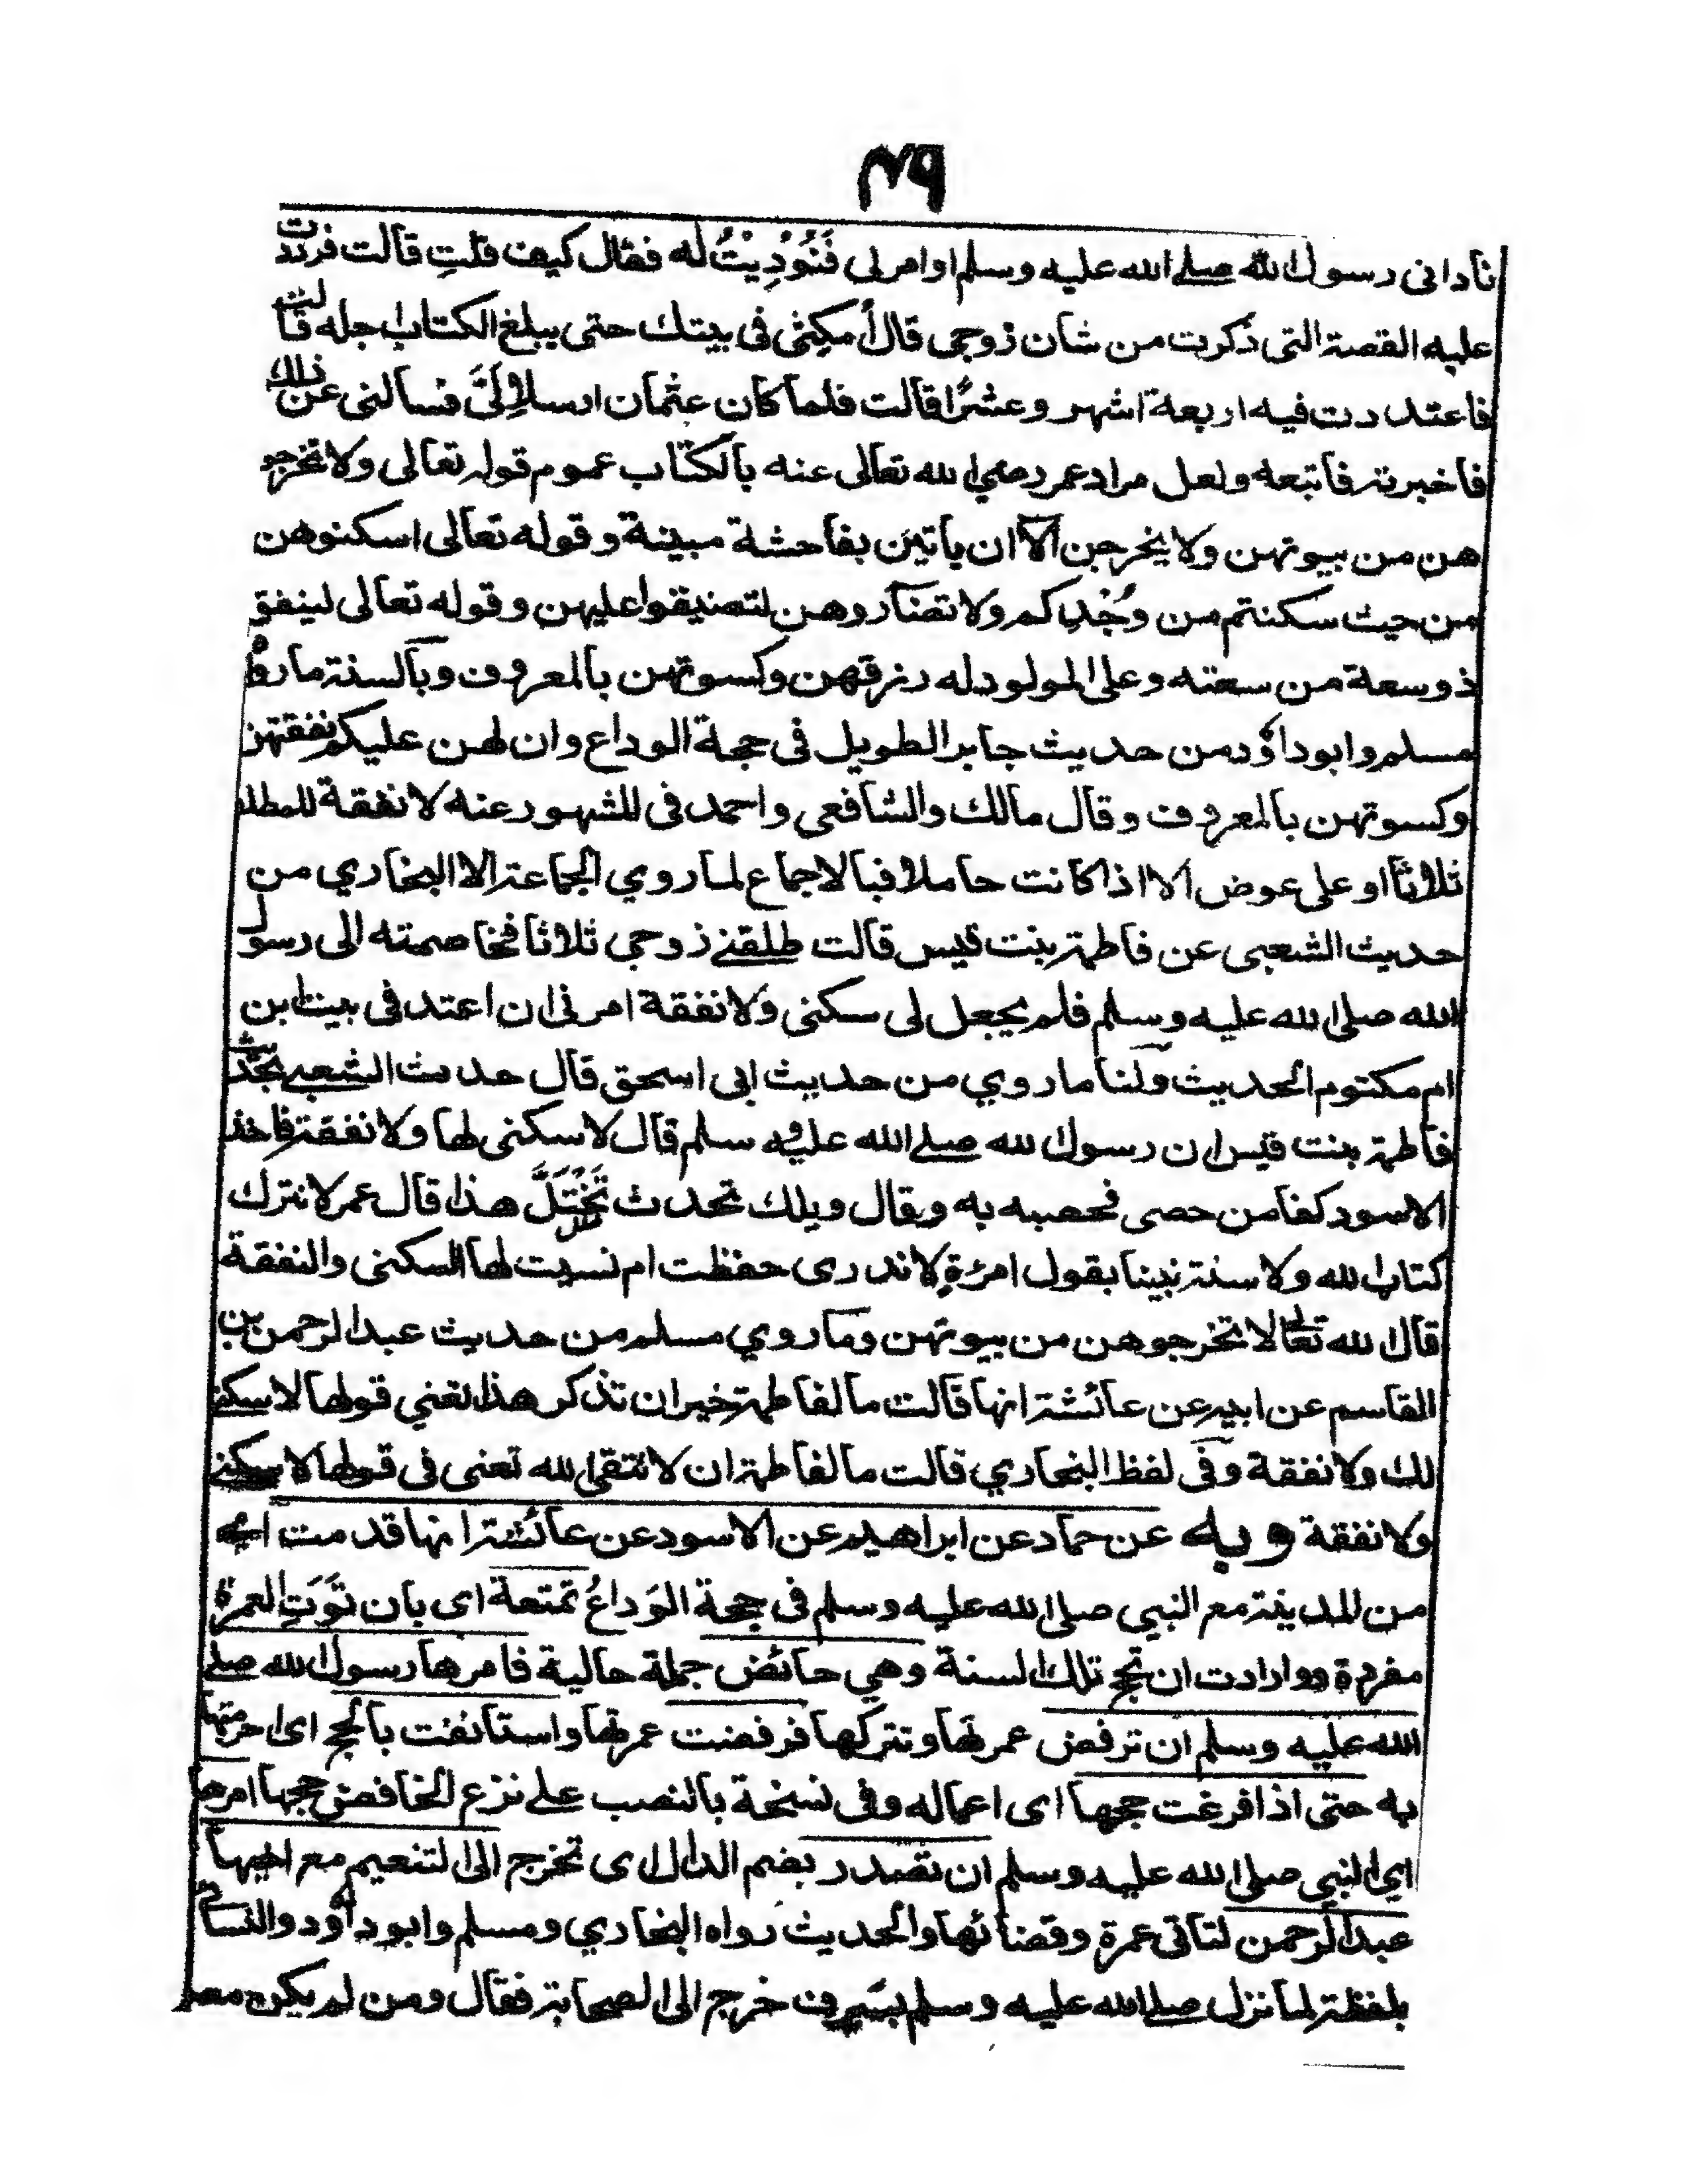 ٤٩
نادانى رسول الله صلے الله عليه وسلم او امر لى فَنُوْدِيْتُ له فقال كيف قلتِ قالت فرددت
عليه القصة التى ذكرت من شان زوجى قال اُمكِثى فى بيتك حتى يبلغ الكتاب اجله قالت
فاعتددت فيه اربعة اشهر وعشرًا قالت فلما كان عثمان ارسل اِلَىَّ فسالنى عن ذلك
فاخبرته فاتبعه ولعل مراد عمر رضي الله تعالى عنه بالكتاب عموم قوله تعالى ولا تخرجو
هن من بيوتهن ولا يخرجن الا ان ياتين بفاحشة مبينة وقوله تعالى اسكنوهن
من حيث سكنتم من وُجْدِكم ولا تضاروهن لتضيقوا عليهن وقوله تعالى لينفق
ذوسعة من سعته وعلى المولود له رزقهن وكسوتهن بالمعروف وبالسنة ما رواه
مسلم وابوداؤد من حديث جابر الطويل فى حجة الوداع وان لهن عليكم نفقتهن
وكسوتهن بالمعروف وقال مالك والشافعى واحمد فى المشهور عنه لا نفقة للمطلقة
ثلاثا او على عوض الا اذا كانت حاملا فبالاجماع لما روي الجماعة الا البخاري من
حديث الشعبى عن فاطمة بنت قيس قالت طلقنے زوجي ثلاثا فخاصمته الى رسول
الله صلى الله عليه وسلم فلم يجعل لى سكنى ولا نفقة امرنى ان اعتد فى بيت ابن
ام مكتوم الحديث ولنا ما روي من حديث ابى اسحق قال حديث الشعبے بحديث
فاطمة بنت قيس ان رسول الله صلے الله عليه وسلم قال لا سكنى لها ولا نفقة فاخذ
الاسود كفا من حصى فحصبه به وقال ويلك تحدث بمثل هذا قال عمر لا نترك
كتاب الله ولا سنة نبينا بقول امرءة لا ندرى حفظت ام نسيت لها السكنى والنفقة
قال الله تعالى لا تخرجوهن من بيوتهن وما روي مسلم من حديث عبد الرحمن بن
القاسم عن ابيه عن عائشة انها قالت ما لفاطمة خير ان تذكر هذا تعني قولها لا سكنے
لك ولا نفقة وفى لفظ البخاري قالت ما لفاطمة ان لا تتقى الله تعنى فى قولها لا سكنے
ولا نفقة وبه عن حماد عن ابراهيم عن الاسود عن عائشة انها قدمت
من المدينة مع النبي صلى الله عليه وسلم فى حجة الوَداع تمتعة اى بان نَوَتِ العمرة
مفردة وارادت ان تحج تلك السنة وهي حائض جملة حالية فامرها رسول الله صلے
الله عليه وسلم ان ترفض عمرتها وتتركها فرفضت عمرتها واستانفت بالحج اى احرمتها
به حتى اذا فرغت حجها اى اعماله وفى نسخة بالنصب علے نزع الخافض حجها امرها
اي النبي صلى الله عليه وسلم ان تصدر بضم الدال اى تخرج الى التنعيم مع اخيها
عبد الرحمن لتاتى عمرة وقضائها والحديث رواه البخاري ومسلم وابوداؤد والنسائى
بلفظة لما نزل صلے الله عليه وسلم بسرف خرج الى الصحابة فقال ومن لم يكن معه